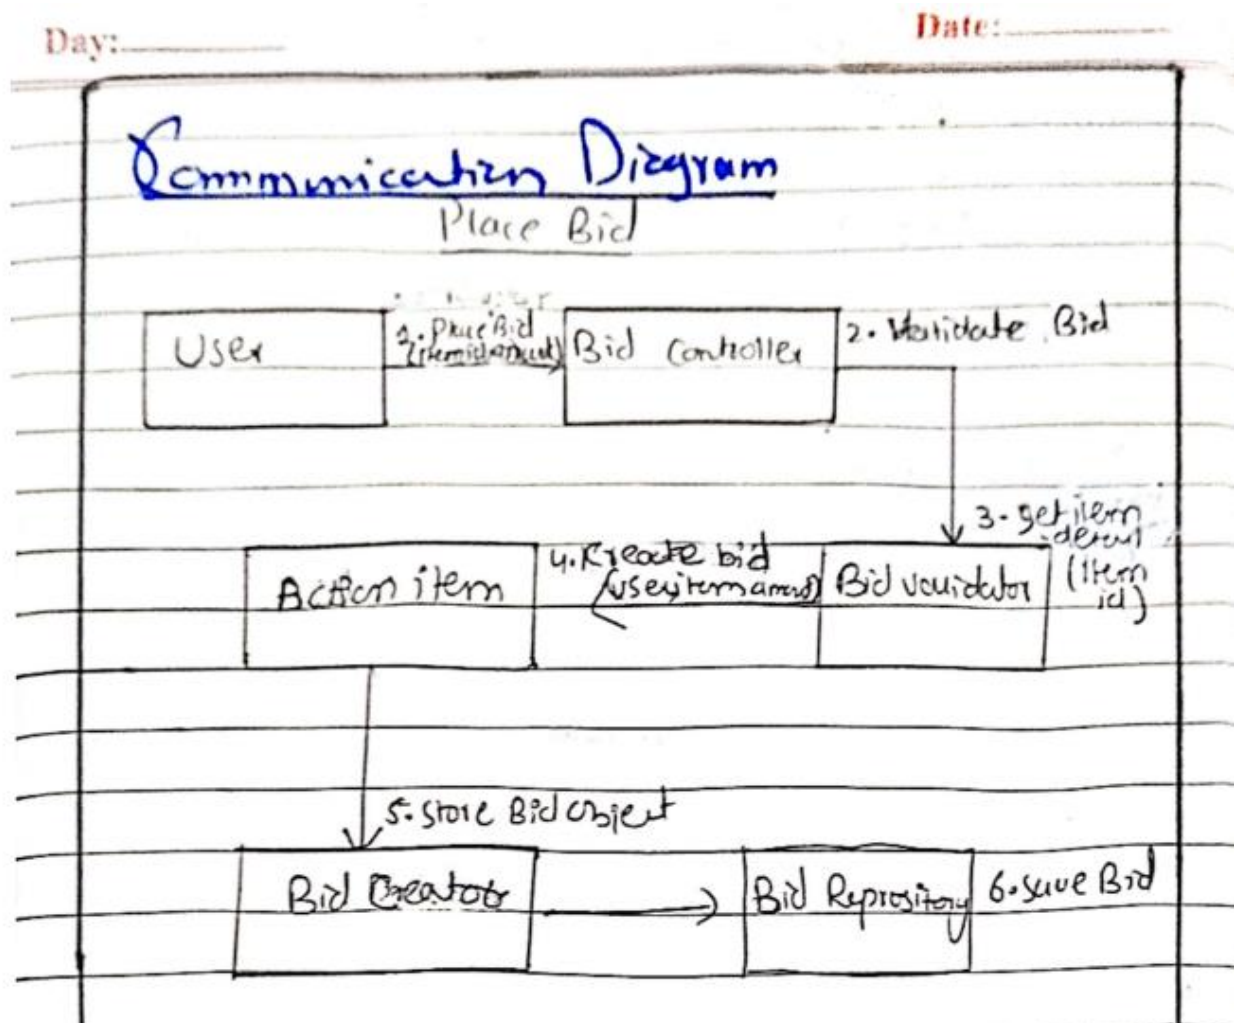 Day:
Date:
Communication Diagram
Place Bid
User
1. Place Bid
(itemid, amount)
Bid Controller
2. Validate Bid
3. get item
detail
(item
id)
Action item
4. Create bid
(user, item,
Bid validator
5. Store Bid object
Bid Creator
Bid Reprository
6. Save Bid